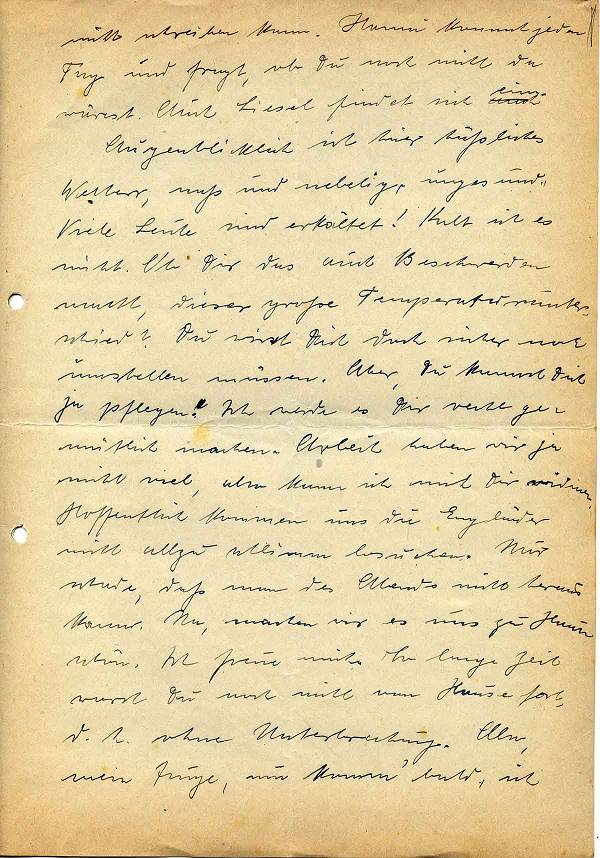 nicht schreiben kann. Hanni kommt jeden
Tag und fragt, ob Du noch nicht da
wärest. Auch Liesel findet sich ein.
Augenblicklich ist hier häßliches
Wetter, naß und nebelig, ungesund.
Viele Leute sind erkältet! Kalt ist es
nicht. Ob Dir das auch Beschwerden
macht, dieser große Temperaturunter-
schied? Du wirst Dich doch sicher noch
umstellen müssen. Aber, Du kannst Dich
ja pflegen! Ich werde es Dir recht ge-
mütlich machen. Arbeit haben wir ja
nicht viel, also kann ich mich Dir widmen.
Hoffentlich kommen uns die Engländer
nicht allzu schlimm besuchen. Nur
schade, daß man des Abends nicht heraus
kann. Na, machen wir es uns zu Hause
schön. Ich freue mich. So lange Zeit
warst Du noch nicht vom Hause fort,
d. h. ohne Unterbrechung. Also,
mein Junge, nun komm' bald, ich